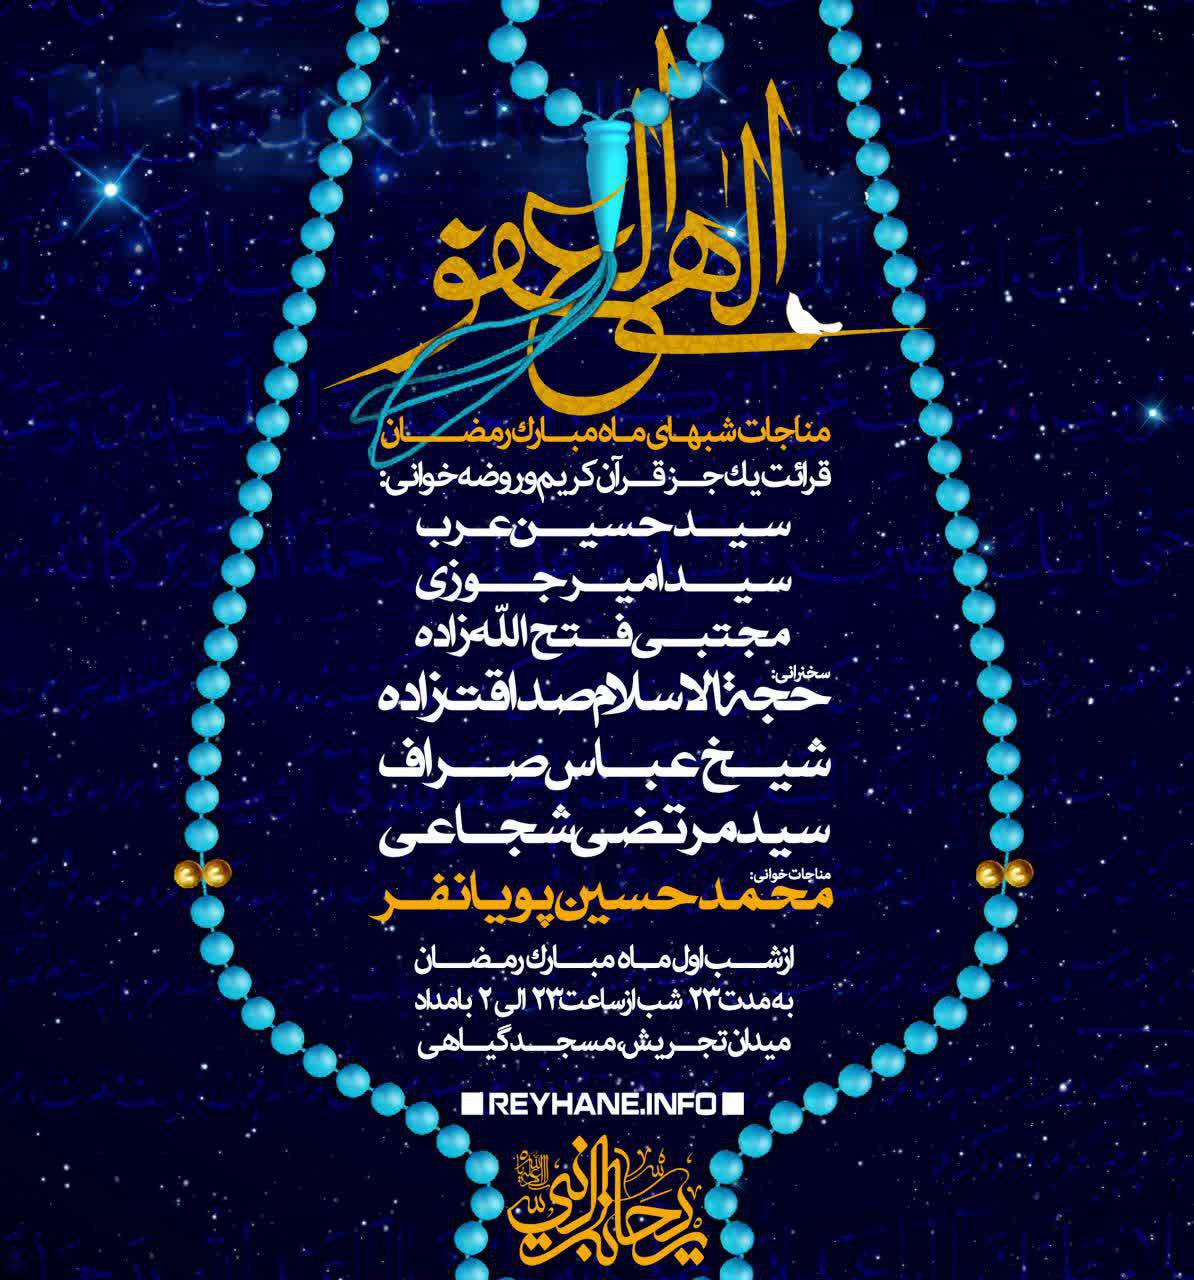 الهی العفو
مناجات شبهای ماه مبارک رمضان
قرائت یک جز قرآن کریم و روضه خوانی:
سید حسین عرب
سید امیر جوزی
مجتبی فتح الله زاده
سخنرانی:
حجة الاسلام صداقت زاده
شیخ عباس صراف
سید مرتضی شجاعی
مناجات خوانی:
محمد حسین پویانفر
از شب اول ماه مبارک رمضان
به مدت ۲۳ شب از ساعت ۲۳ الی ۲ بامداد
میدان تجریش، مسجد گیاهی
REYHANE.INFO
ریحانة النبی